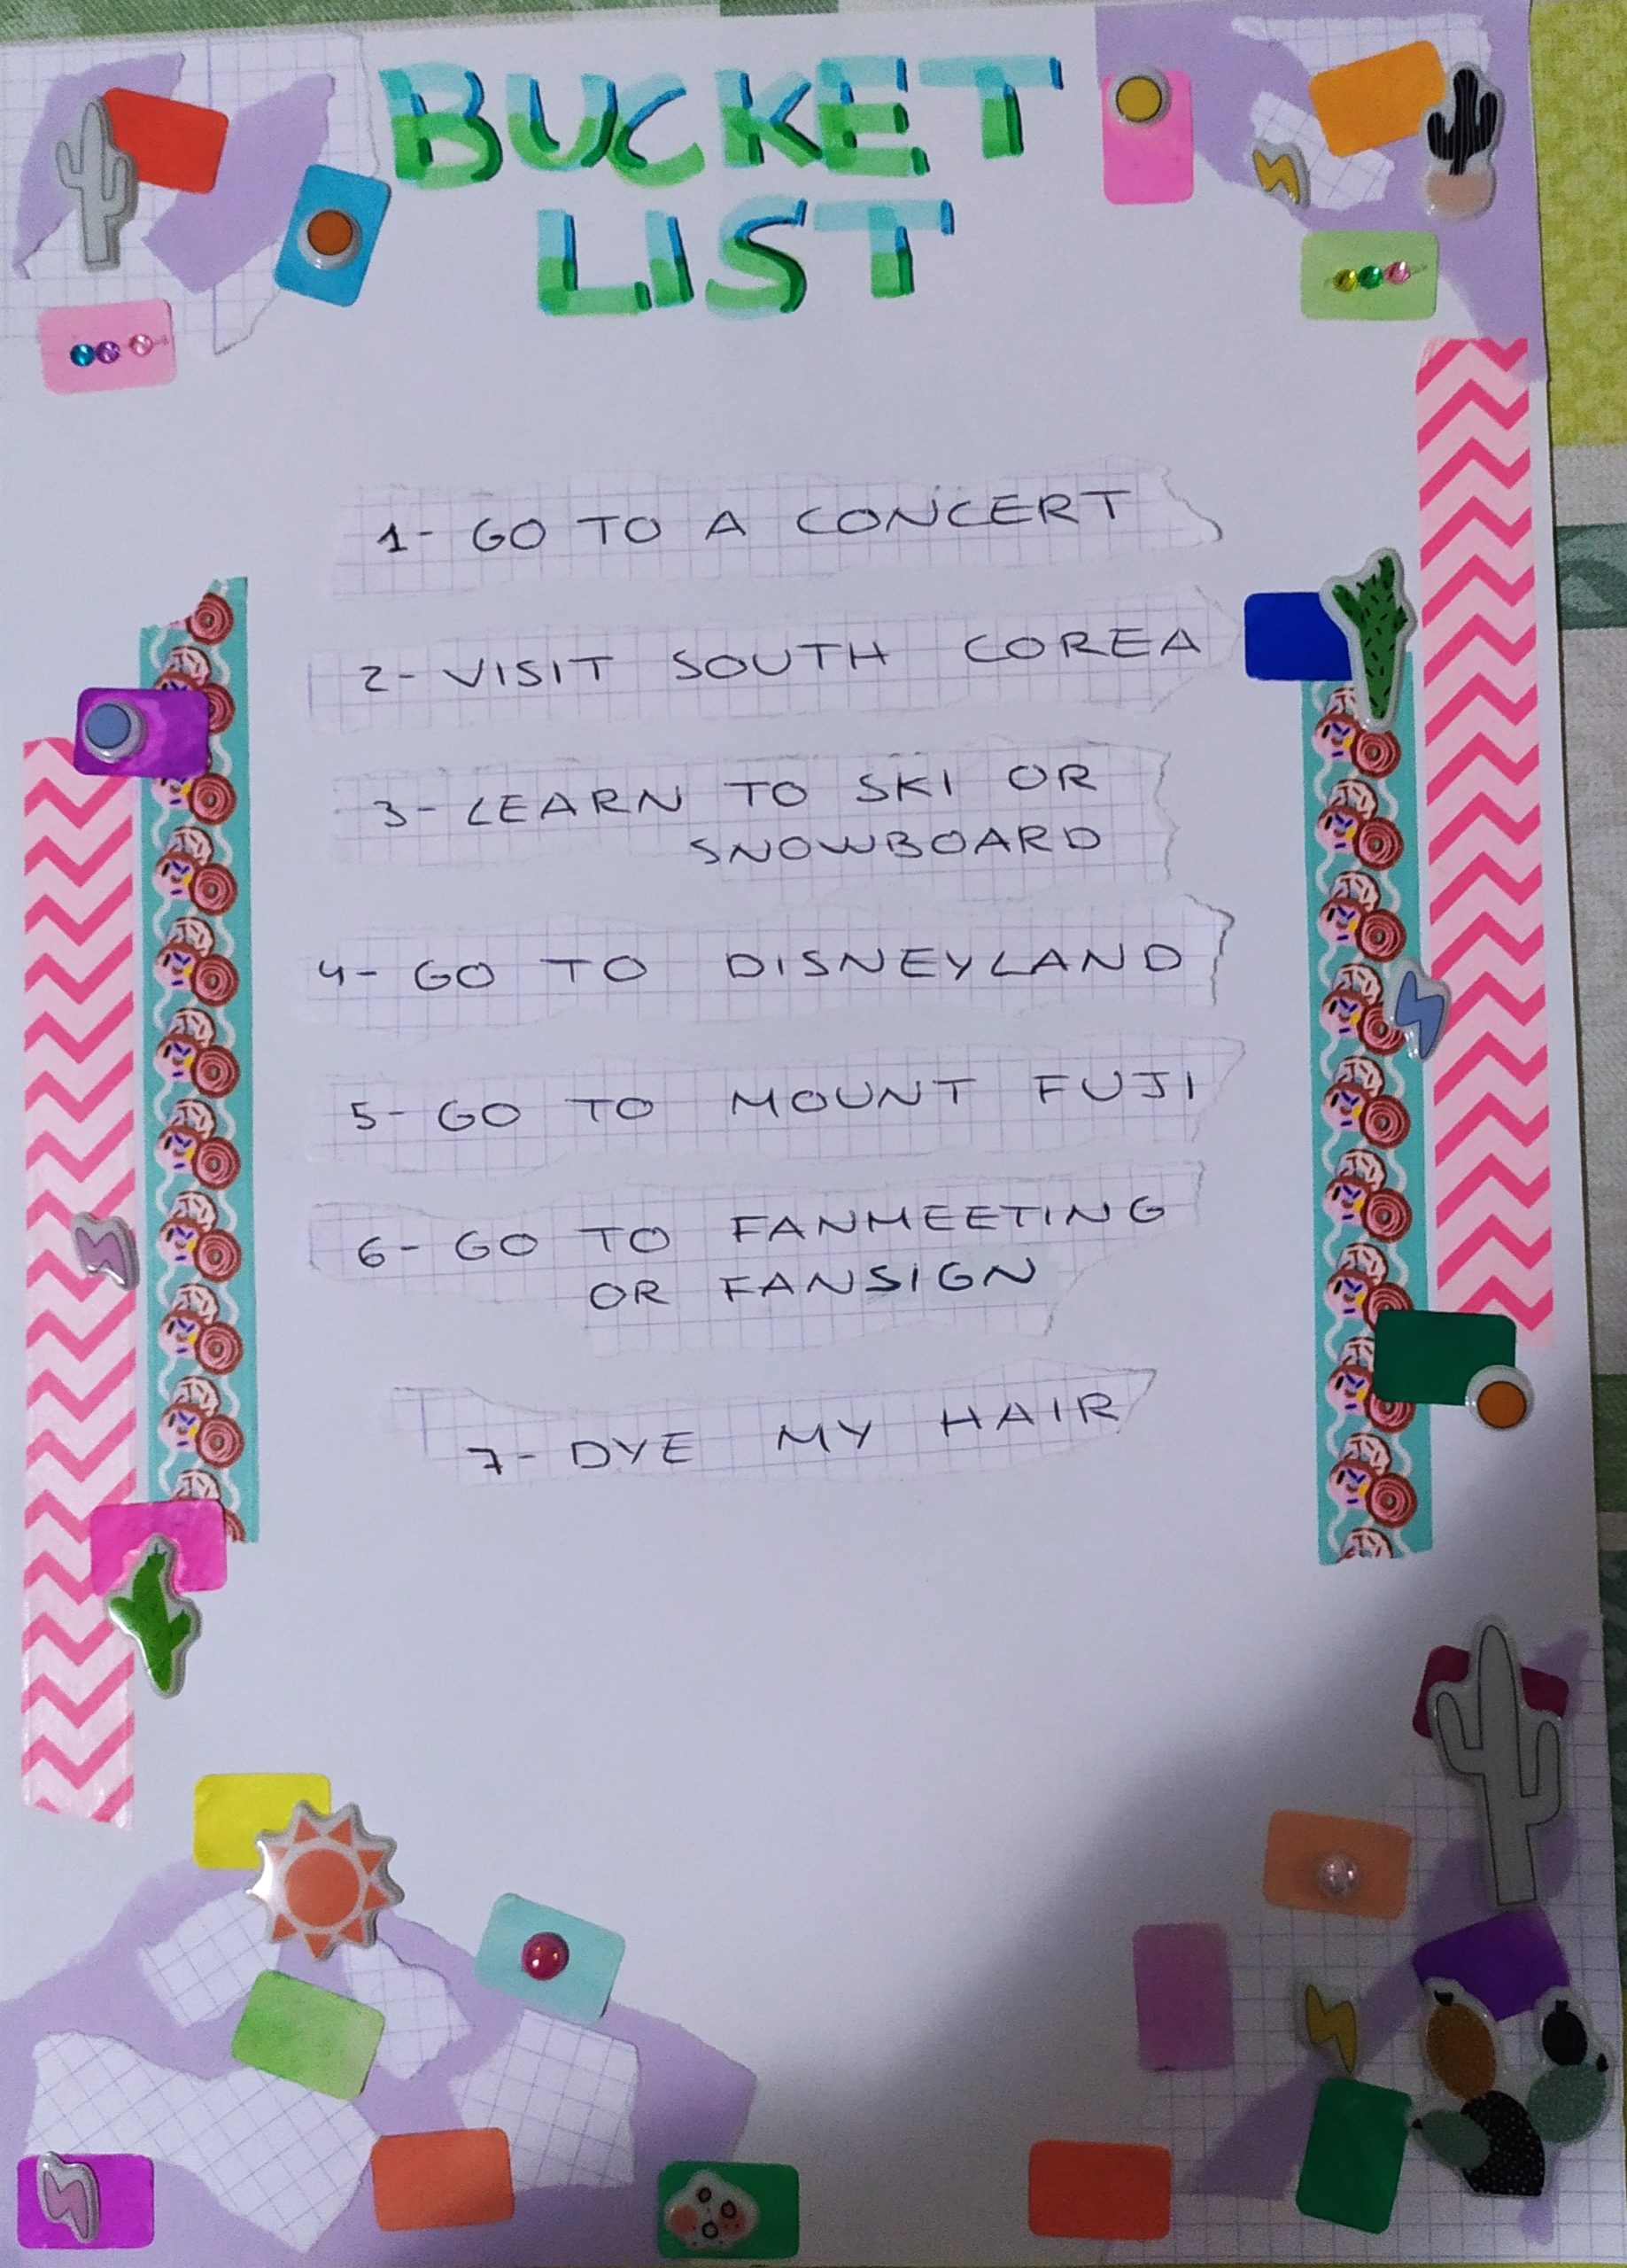 BUCKET
LIST
1- GO TO A CONCERT
2- VISIT SOUTH COREA
3- LEARN TO SKI OR
SNOWBOARD
4- GO TO DISNEYLAND
5- GO TO MOUNT FUJI
6- GO TO FANMEETING
OR FANSIGN
7- DYE MY HAIR